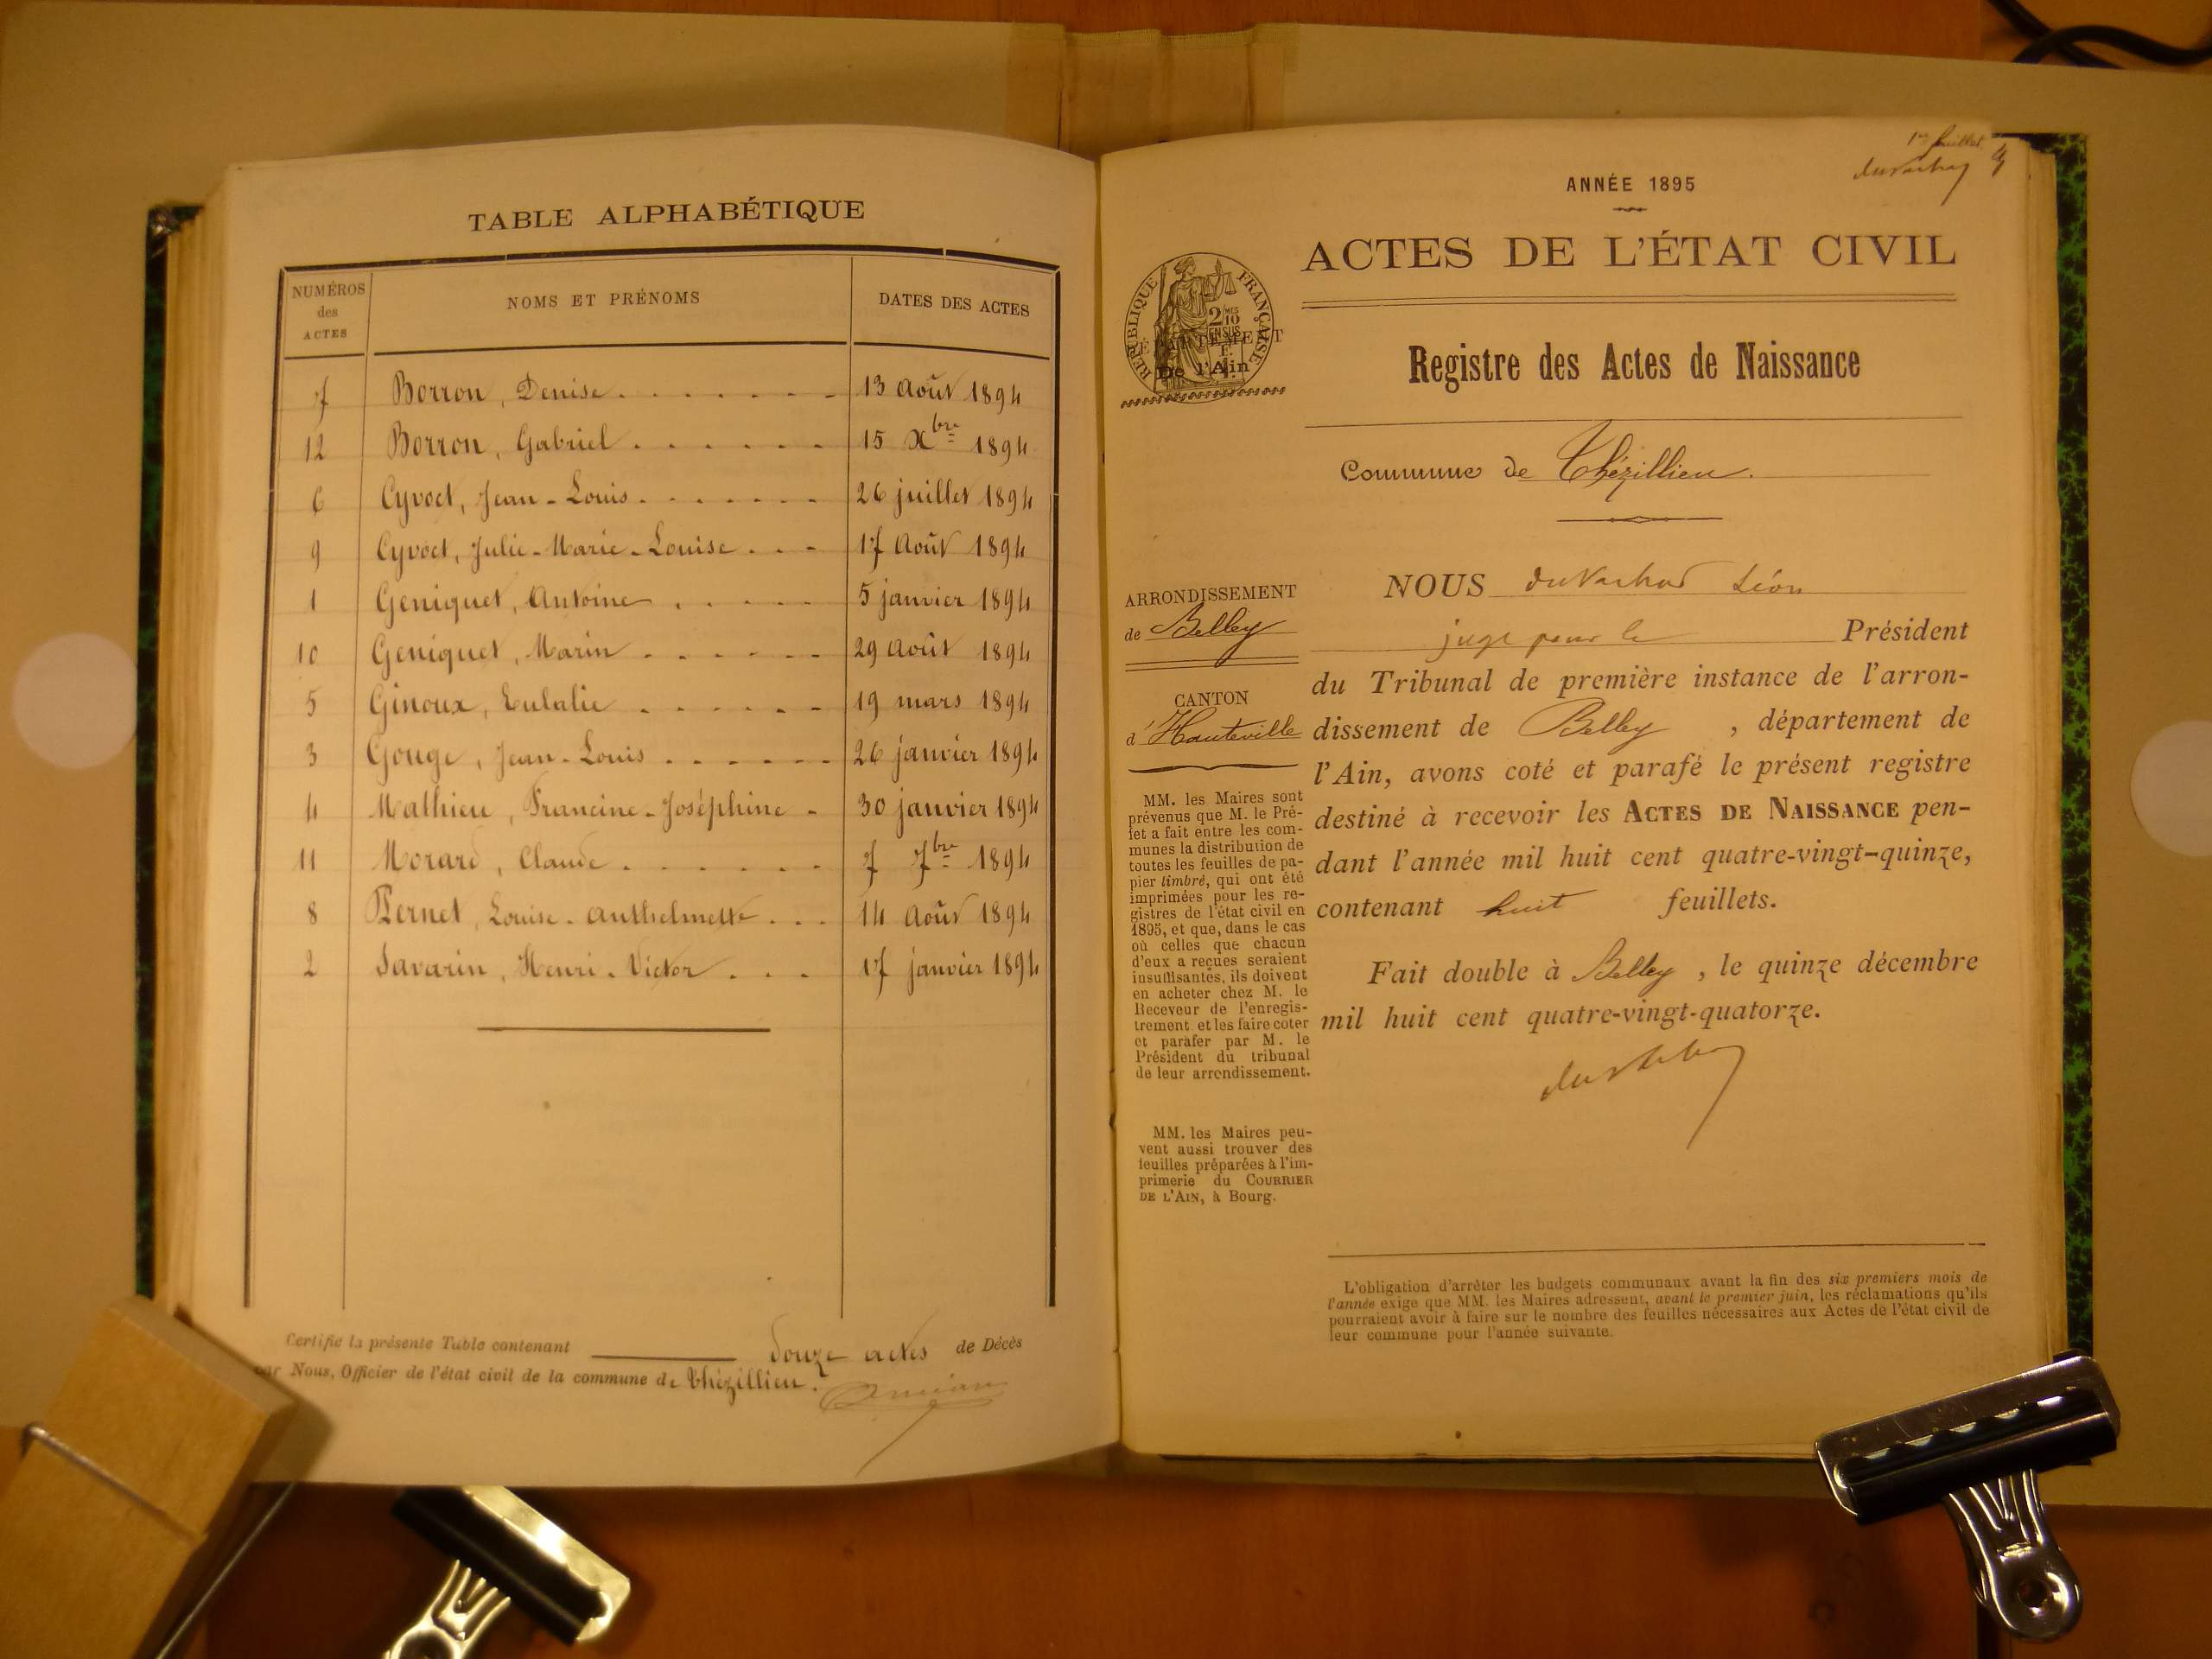 TABLE ALPHABÉTIQUE
NUMÉROS
des
ACTES
NOMS ET PRÉNOMS
DATES DES ACTES
7 Borron, Denise 13 Août 1894
12 Borron, Gabriel 15 Xbre 1894
6 Cyvoct, Jean-Louis 26 juillet 1894
9 Cyvoct, Julie-Marie-Louise 17 Août 1894
1 Geniquet, Antoine 5 janvier 1894
10 Geniquet, Marin 29 Août 1894
5 Ginoux, Eulalie 19 mars 1894
3 Gouge, Jean-Louis 26 janvier 1894
4 Mathieu, Francine-Joséphine 30 janvier 1894
11 Morard, Claude 7 7bre 1894
8 Pernet, Louise-Anthelmette 14 Août 1894
2 Savarin, Henri-Victor 17 janvier 1894
Certifié la présente Table contenant douze actes de Décès
par Nous, Officier de l'état civil de la commune de Thézillieu.
1er feuillet
ANNÉE 1895
ACTES DE L'ÉTAT CIVIL
RÉPUBLIQUE FRANÇAISE
DÉPARTEMENT
De l'Ain
Registre des Actes de Naissance
Commune de Thézillieu.
ARRONDISSEMENT
de Belley
CANTON
d'Hauteville
MM. les Maires sont
prévenus que M. le Pré-
fet a fait entre les com-
munes la distribution de
toutes les feuilles de pa-
pier timbré, qui ont été
imprimées pour les re-
gistres de l'état civil en
1895, et que, dans le cas
où celles que chacun
d'eux a reçues seraient
insuffisantes, ils doivent
en acheter chez M. le
Receveur de l'enregis-
trement et les faire coter
et parafer par M. le
Président du tribunal
de leur arrondissement.
MM. les Maires peu-
vent aussi trouver des
feuilles préparées à l'im-
primerie du COURRIER
DE L'AIN, à Bourg.
NOUS Léon
juge pour le Président
du Tribunal de première instance de l'arron-
dissement de Belley , département de
l'Ain, avons coté et parafé le présent registre
destiné à recevoir les ACTES DE NAISSANCE pen-
dant l'année mil huit cent quatre-vingt-quinze,
contenant huit feuillets.
Fait double à Belley , le quinze décembre
mil huit cent quatre-vingt-quatorze.
L'obligation d'arrêter les budgets communaux avant la fin des six premiers mois de
l'année exige que MM. les Maires adressent, avant le premier juin, les réclamations qu'ils
pourraient avoir à faire sur le nombre des feuilles nécessaires aux Actes de l'état civil de
leur commune pour l'année suivante.